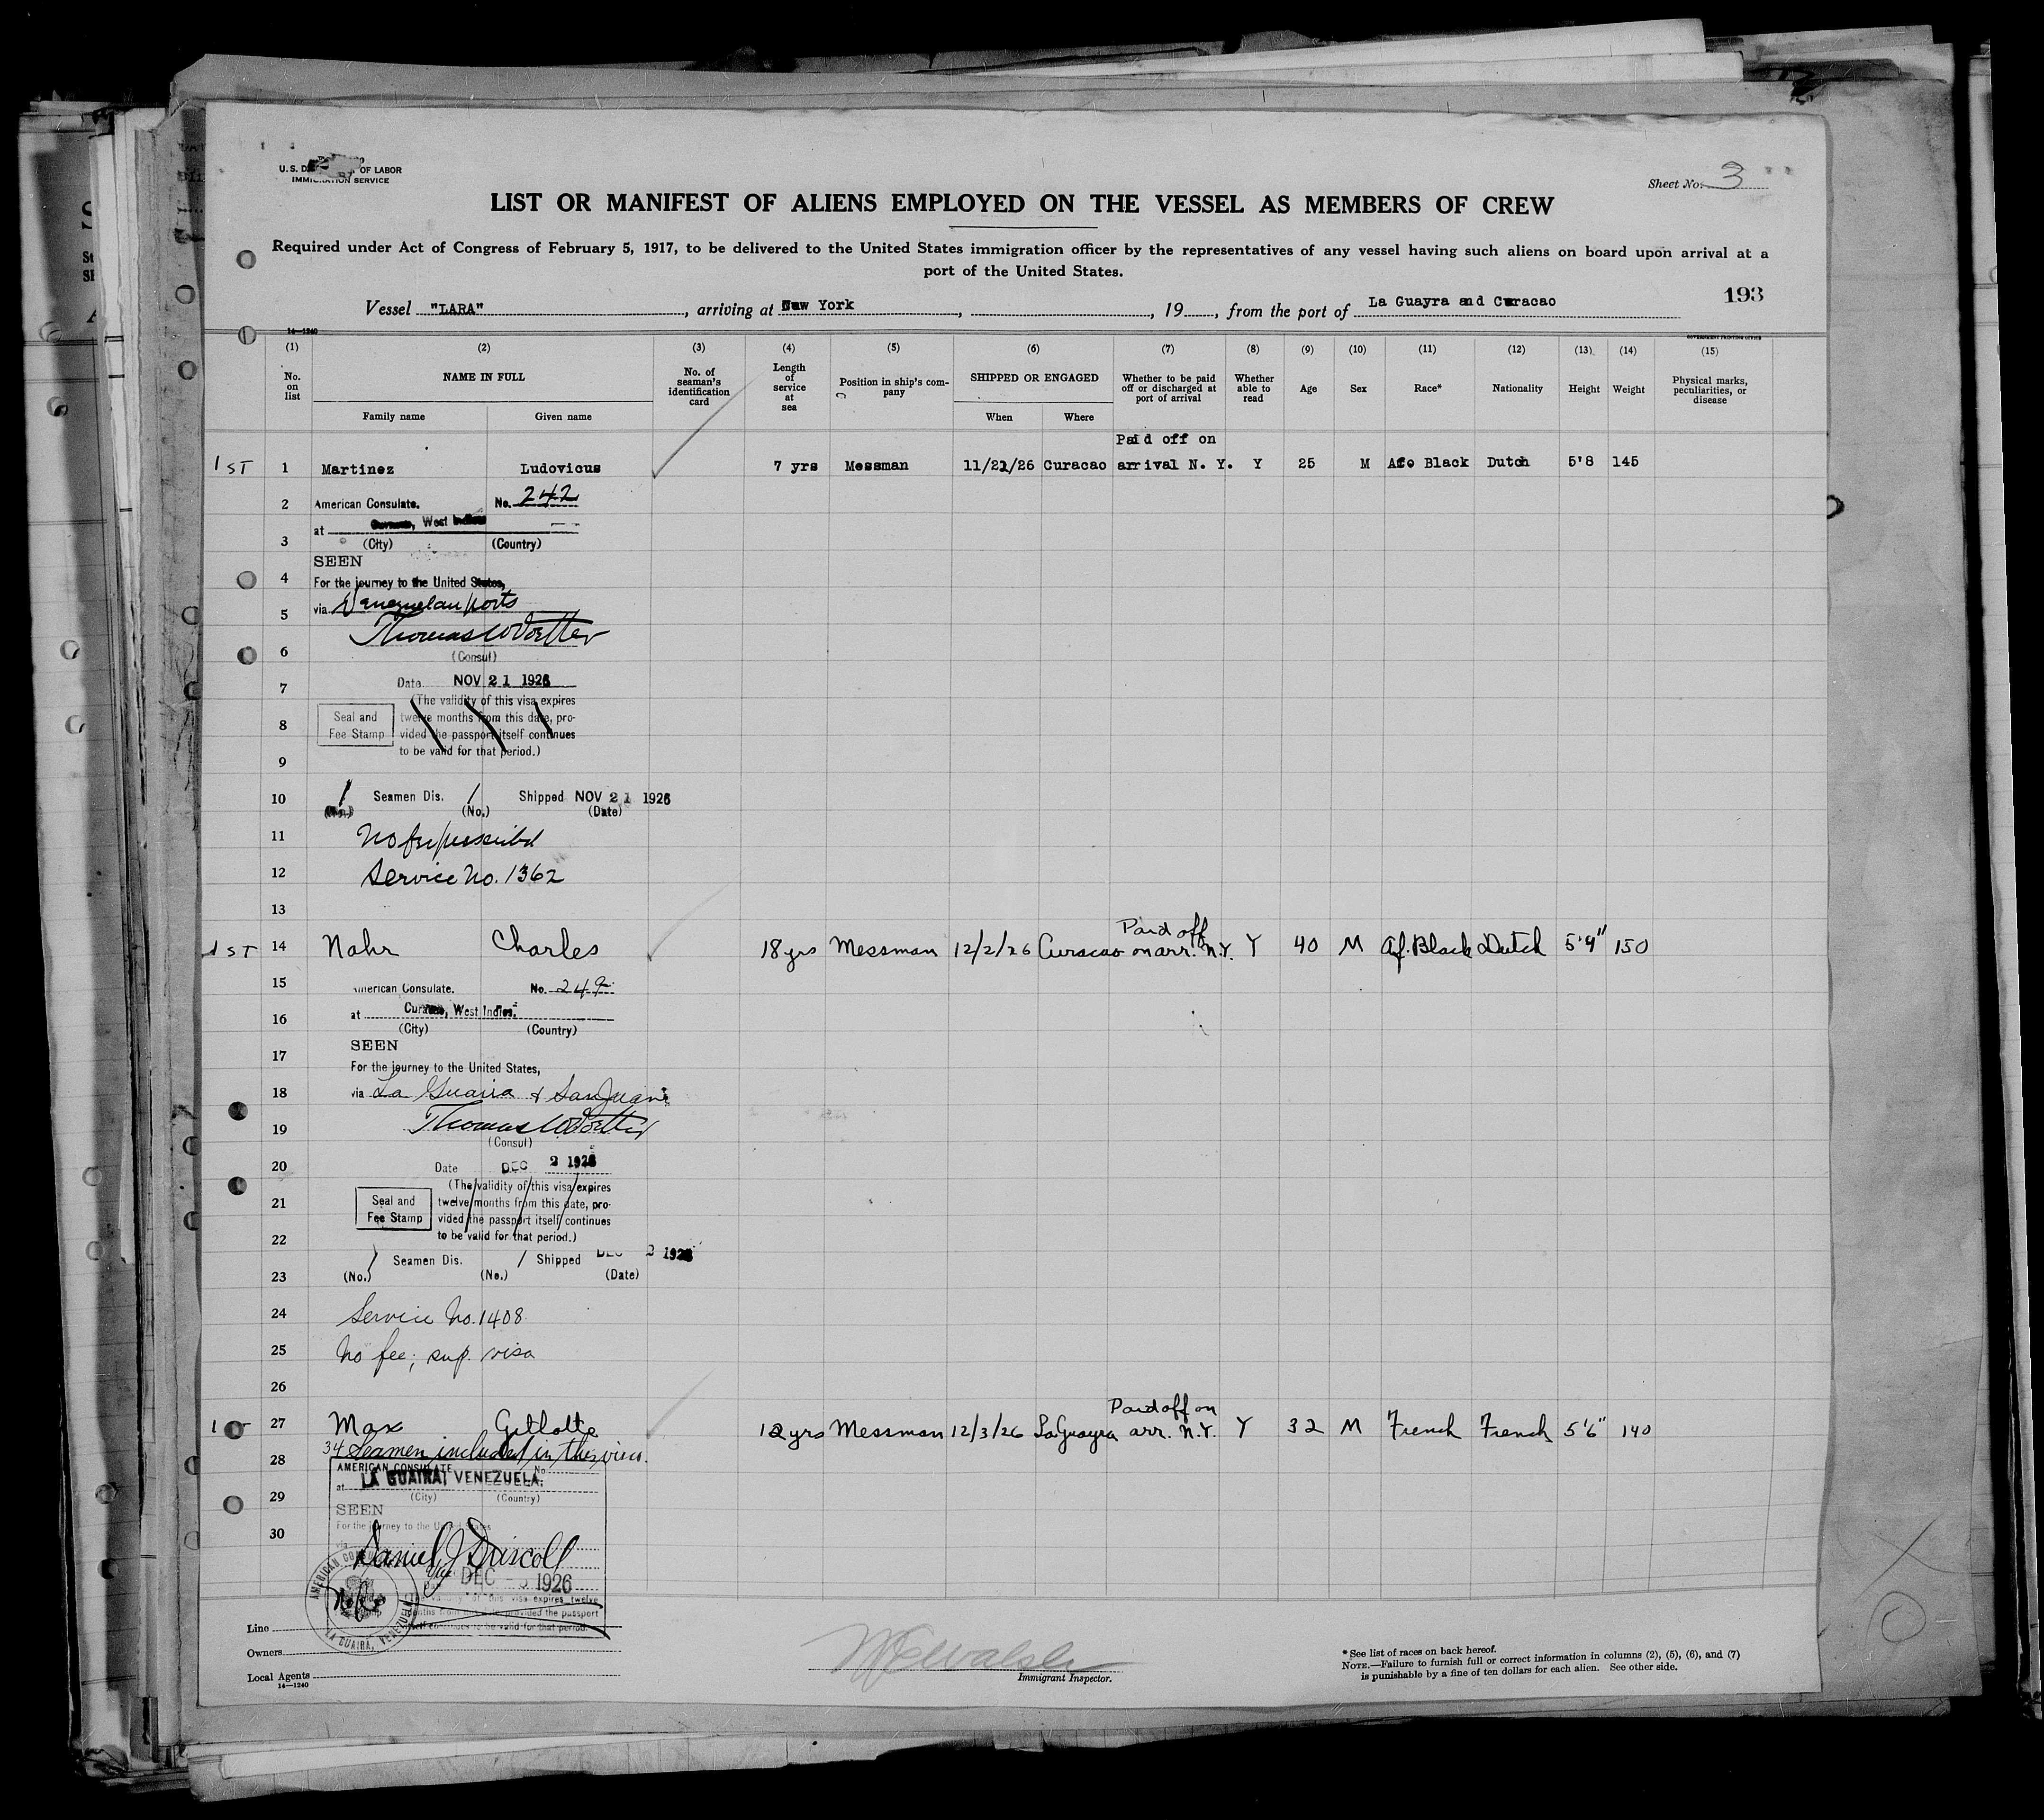 U.S. D OF LABOR
IMMIGRATION SERVICE
Sheet No. 3
LIST OR MANIFEST OF ALIENS EMPLOYED ON THE VESSEL AS MEMBERS OF CREW
Required under Act of Congress of February 5, 1917, to be delivered to the United States immigration officer by the representatives of any vessel having such aliens on board upon arrival at a
port of the United States.
193
Vessel "LARA", arriving at New York, , 19 , from the port of La Guayra and Curacao
14—1240
GOVERNMENT PRINTING OFFICE
(1) (2) (3) (4) (5) (6) (7) (8) (9) (10) (11) (12) (13) (14) (15)
No. on list NAME IN FULL No. of seaman's identification card Length of service at sea Position in ship's company SHIPPED OR ENGAGED Whether to be paid off or discharged at port of arrival Whether able to read Age Sex Race* Nationality Height Weight Physical marks, peculiarities, or disease
Family name Given name When Where
Paid off on
1 ST 1 Martinez Ludovicus 7 yrs Messman 11/22/26 Curacao arrival N. Y. Y 25 M Afo Black Dutch 5'8 145
2 American Consulate. No. 242
at West
3 (City) (Country)
SEEN
4 For the journey to the United States,
5 via Venezuelan ports
Thomas W Voetter
6 (Consul)
7 Date NOV 21 1926
(The validity of this visa expires
8 Seal and Fee Stamp twelve months from this date, pro-
vided the passport itself continues
to be valid for that period.)
9
10 1 Seamen Dis. / Shipped NOV 21 1926
(No.) (No.) (Date)
11 No fee prescribed
12 Service No. 1362
13
Paid off
1 ST 14 Nahr Charles 18 yrs Messman 12/2/26 Curacao on arr. N.Y. Y 40 M Af. Black Dutch 5'9" 150
15 American Consulate. No. 249
16 at Curacao, West Indies.
(City) (Country)
17 SEEN
For the journey to the United States,
18 via La Guaira & San Juan
19 Thomas W Voetter
(Consul)
20 Date DEC 2 1926
(The validity of this visa expires
21 Seal and Fee Stamp twelve months from this date, pro-
vided the passport itself continues
22 to be valid for that period.)
/ Seamen Dis. / Shipped DEC 2 1926
23 (No.) (No.) (Date)
24 Service No. 1408
25 No fee; sup. visa
26
Paid off on
27 Max Gillotte 12 yrs Messman 12/3/26 LaGuayra arr. N.Y. Y 32 M French French 5'6" 140
34 Seamen included in this visa.
28 AMERICAN CONSULATE No.
at LA GUAIRA, VENEZUELA.
29 (City) (Country)
SEEN
30 For the journey to the United States
via
Daniel J Driscoll
Vice
Date DEC 1926
AMERICAN CONSULATE
LA GUAIRA, VENEZUELA
No fee
(The validity of this visa expires twelve
months from this date, provided the passport
itself continues to be valid for that period.)
Line
Owners
Local Agents
14—1240
Immigrant Inspector.
* See list of races on back hereof.
NOTE.—Failure to furnish full or correct information in columns (2), (5), (6), and (7)
is punishable by a fine of ten dollars for each alien. See other side.